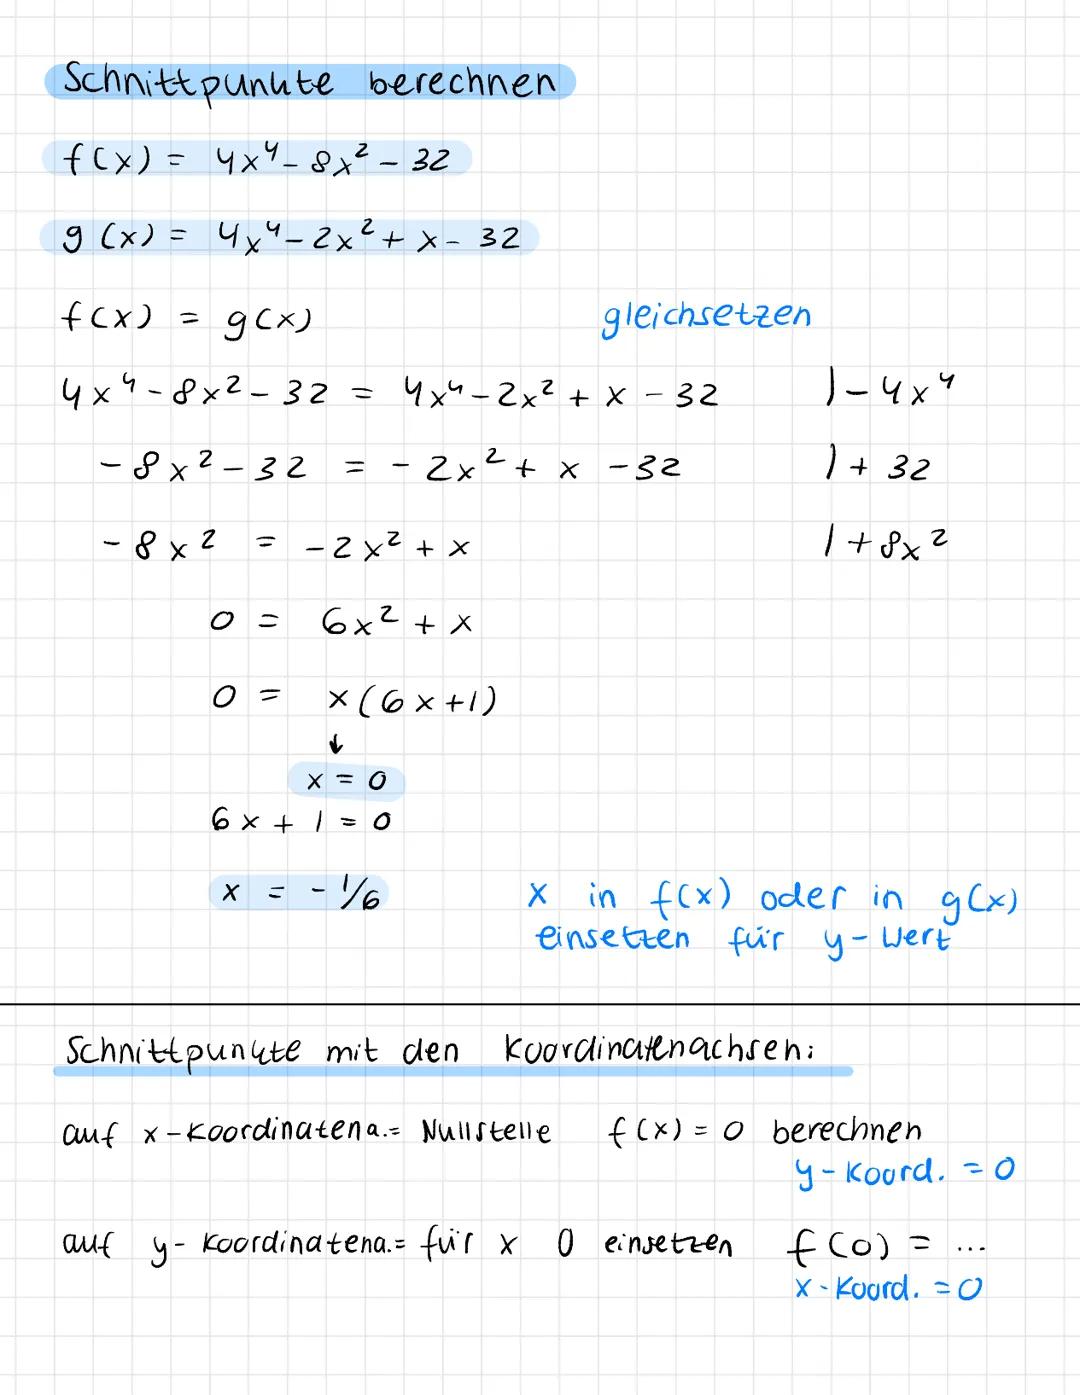 Schnittpunkte berechnen
f(x) = 4x⁴ - 8x² - 32
g(x) = 4x⁴ - 2x² + x - 32
f(x) = g(x) gleichsetzen
4x⁴ - 8x² - 32 = 4x⁴ - 2x² + x - 32 | - 4x⁴
- 8x² - 32 = - 2x² + x - 32 | + 32
- 8x² = - 2x² + x | + 8x²
0 = 6x² + x
0 = x(6x+1)
↓
x = 0
6x + 1 = 0
x = - 1/6
x in f(x) oder in g(x)
einsetzen für y-Wert
Schnittpunkte mit den Koordinatenachsen:
auf x-Koordinatena.= Nullstelle f(x) = 0 berechnen
y-Koord. = 0
auf y-Koordinatena.= für x 0 einsetzen f(0) = ...
x-Koord. = 0